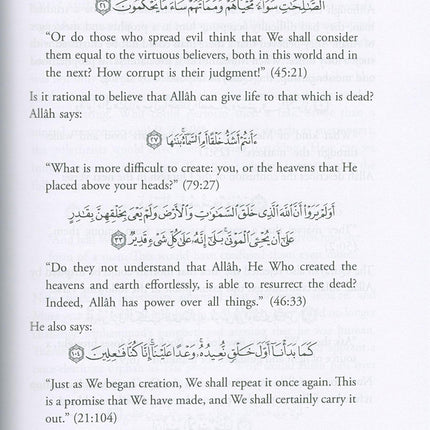 الصَّـٰلِحَـٰتِ سَوَآءً مَّحْيَاهُمْ وَمَمَاتُهُمْ سَآءَ مَا يَحْكُمُونَ ۝٢١
“Or do those who spread evil think that We shall consider
them equal to the virtuous believers, both in this world and in
the next? How corrupt is their judgment!” (45:21)
Is it rational to believe that Allâh can give life to that which is dead?
Allâh says:
ءَأَنتُمْ أَشَدُّ خَلْقًا أَمِ ٱلسَّمَآءُ بَنَىٰهَا ۝٢٧
“What is more difficult to create: you, or the heavens that He
placed above your heads?” (79:27)
أَوَلَمْ يَرَوْا۟ أَنَّ ٱللَّهَ ٱلَّذِى خَلَقَ ٱلسَّمَـٰوَٰتِ وَٱلْأَرْضَ وَلَمْ يَعْىَ بِخَلْقِهِنَّ بِقَـٰدِرٍ
عَلَىٰٓ أَن يُحْـِۧىَ ٱلْمَوْتَىٰ ۚ بَلَىٰٓ إِنَّهُۥ عَلَىٰ كُلِّ شَىْءٍ قَدِيرٌ ۝٣٣
“Do they not understand that Allâh, He Who created the
heavens and earth effortlessly, is able to resurrect the dead?
Indeed, Allâh has power over all things.” (46:33)
He also says:
كَمَا بَدَأْنَآ أَوَّلَ خَلْقٍ نُّعِيدُهُۥ ۚ وَعْدًا عَلَيْنَآ ۚ إِنَّا كُنَّا فَـٰعِلِينَ ۝١٠٤
“Just as We began creation, We shall repeat it once again. This
is a promise that We have made, and We shall certainly carry it
out.” (21:104)